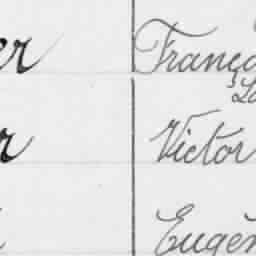 er França
Lo
r Victor
Eugèn